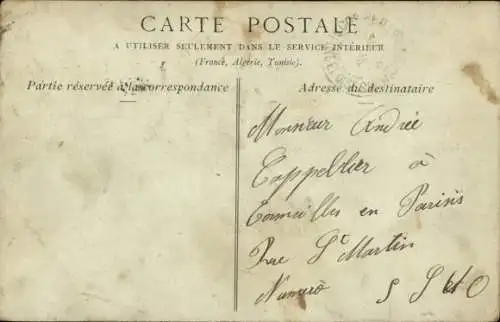 CARTE POSTALE
A UTILISER SEULEMENT DANS LE SERVICE INTÉRIEUR
(France, Algérie, Tunisie).
Partie réservée à la correspondance
Adresse du destinataire
Monsieur André
Cappeblier à
Cormeilles en Parisis
Rue St Martin
Numero 5 S et O